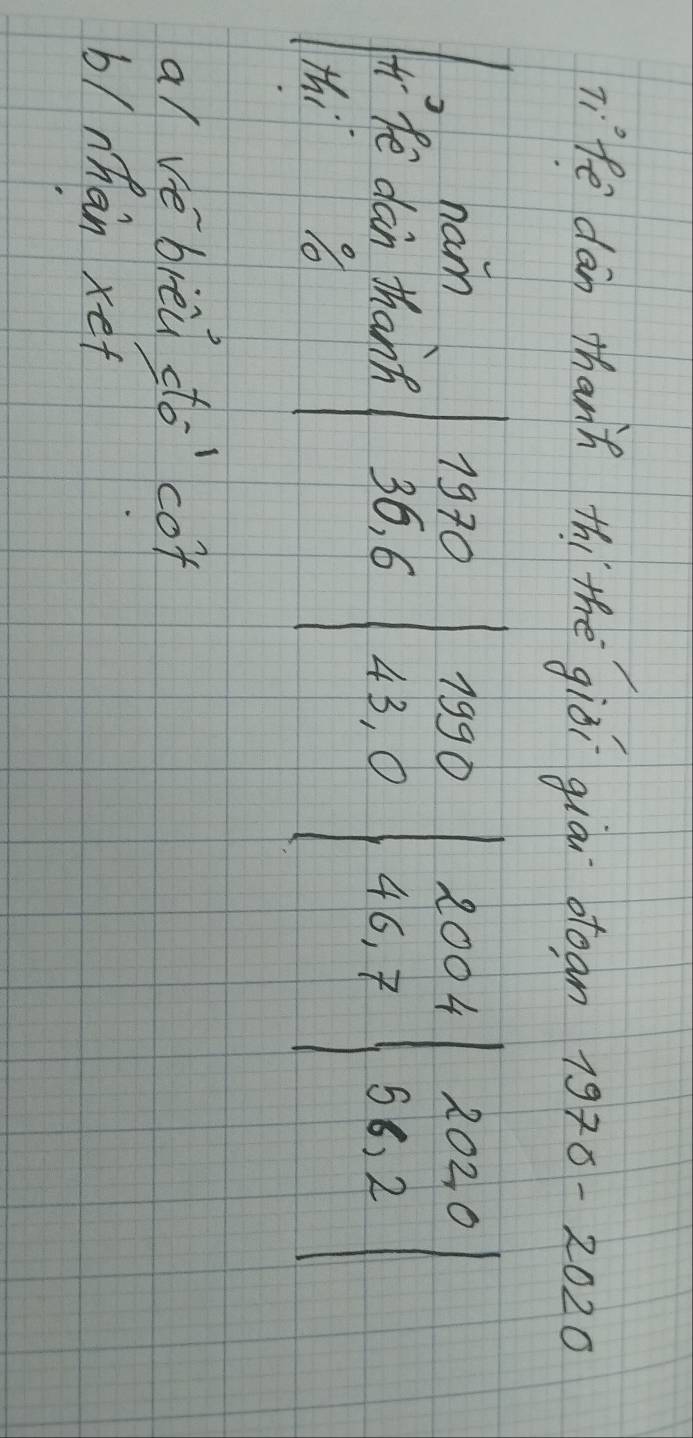 Tỉ lệ dân thành thị thế giới giai đoạn 1970 - 2020
năm | 1970 | 1990 | 2004 | 2020
tỉ lệ dân thành | 36,6 | 43,0 | 46,7 | 56,2
thị %
a/ vẽ biểu đồ cột
b/ nhận xét